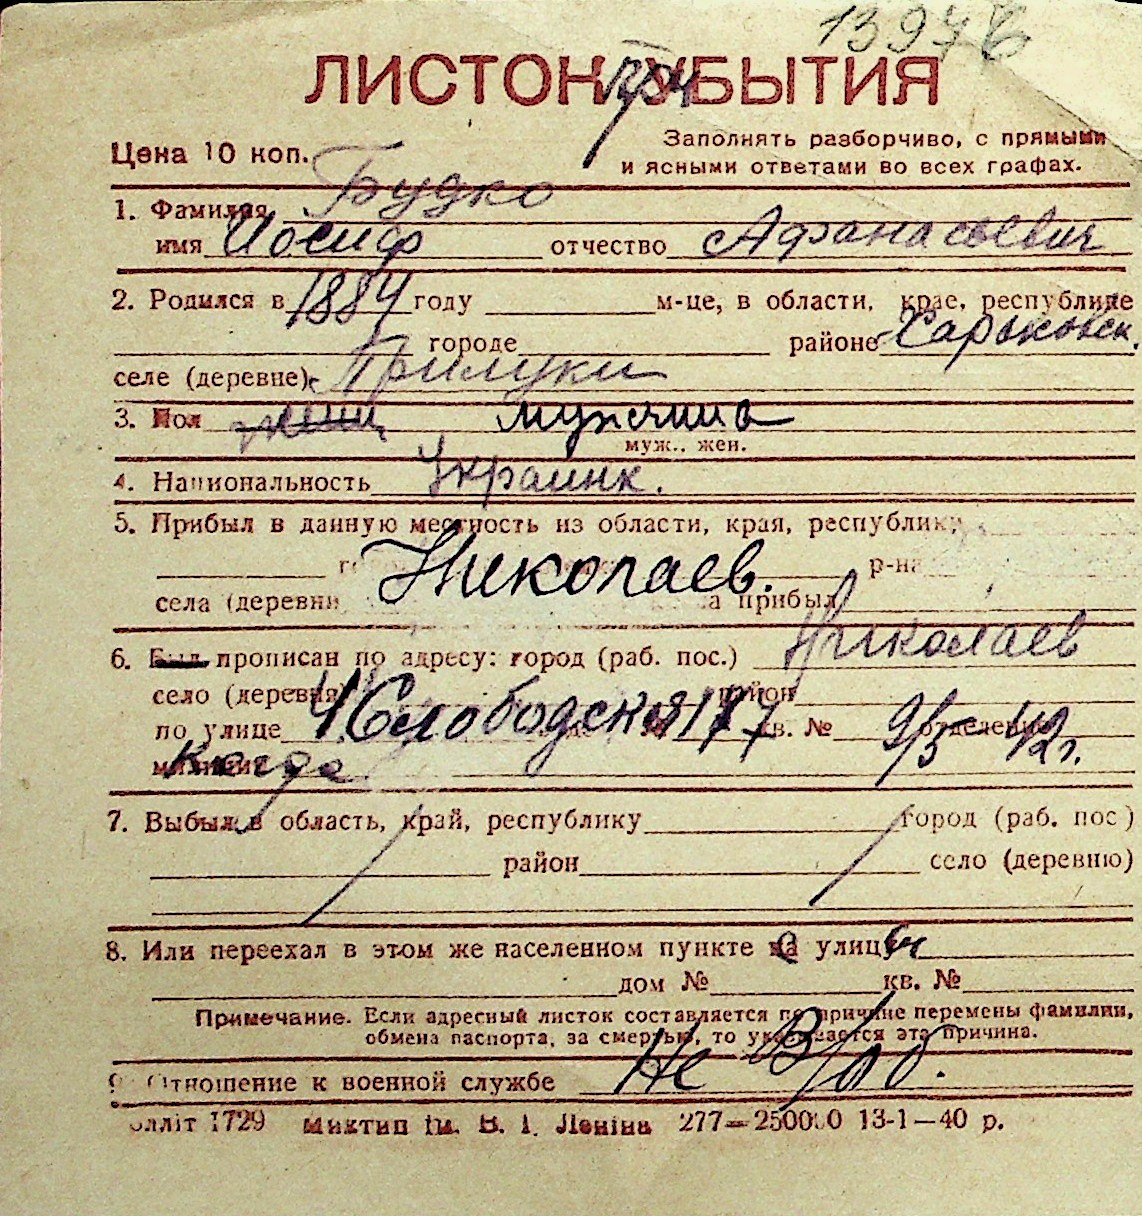 1397б
ЛИСТОК УБЫТИЯ
Цена 10 коп.
Заполнять разборчиво, с прямыми
и ясными ответами во всех графах.
1. Фамилия Будко
имя Иосиф отчество Афанасьевич
2. Родился в 1884 году м-це, в области, крае, республике
городе районе Харьковск.
селе (деревне) Прилуки
3. Пол женщ мужчина
муж., жен.
4. Национальность Украинк.
5. Прибыл в данную местность из области, края, республики
Николаев. р-на
села (деревни прибыл
6. Был прописан по адресу: город (раб. пос.) Николаев
село (деревня) район
по улице 4 Слободская 177 кв. № 9/5 42г. отделение
милиции когда
7. Выбыл в область, край, республику город (раб. пос)
район село (деревню)
8. Или переехал в этом же населенном пункте на улицу
дом № кв. №
Примечание. Если адресный листок составляется по причине перемены фамилии,
обмена паспорта, за смертью, то указывается эта причина.
9. Отношение к военной службе Не В/об.
1729 Миктип ім. В. І. Леніна 277—250000 13-1—40 р.